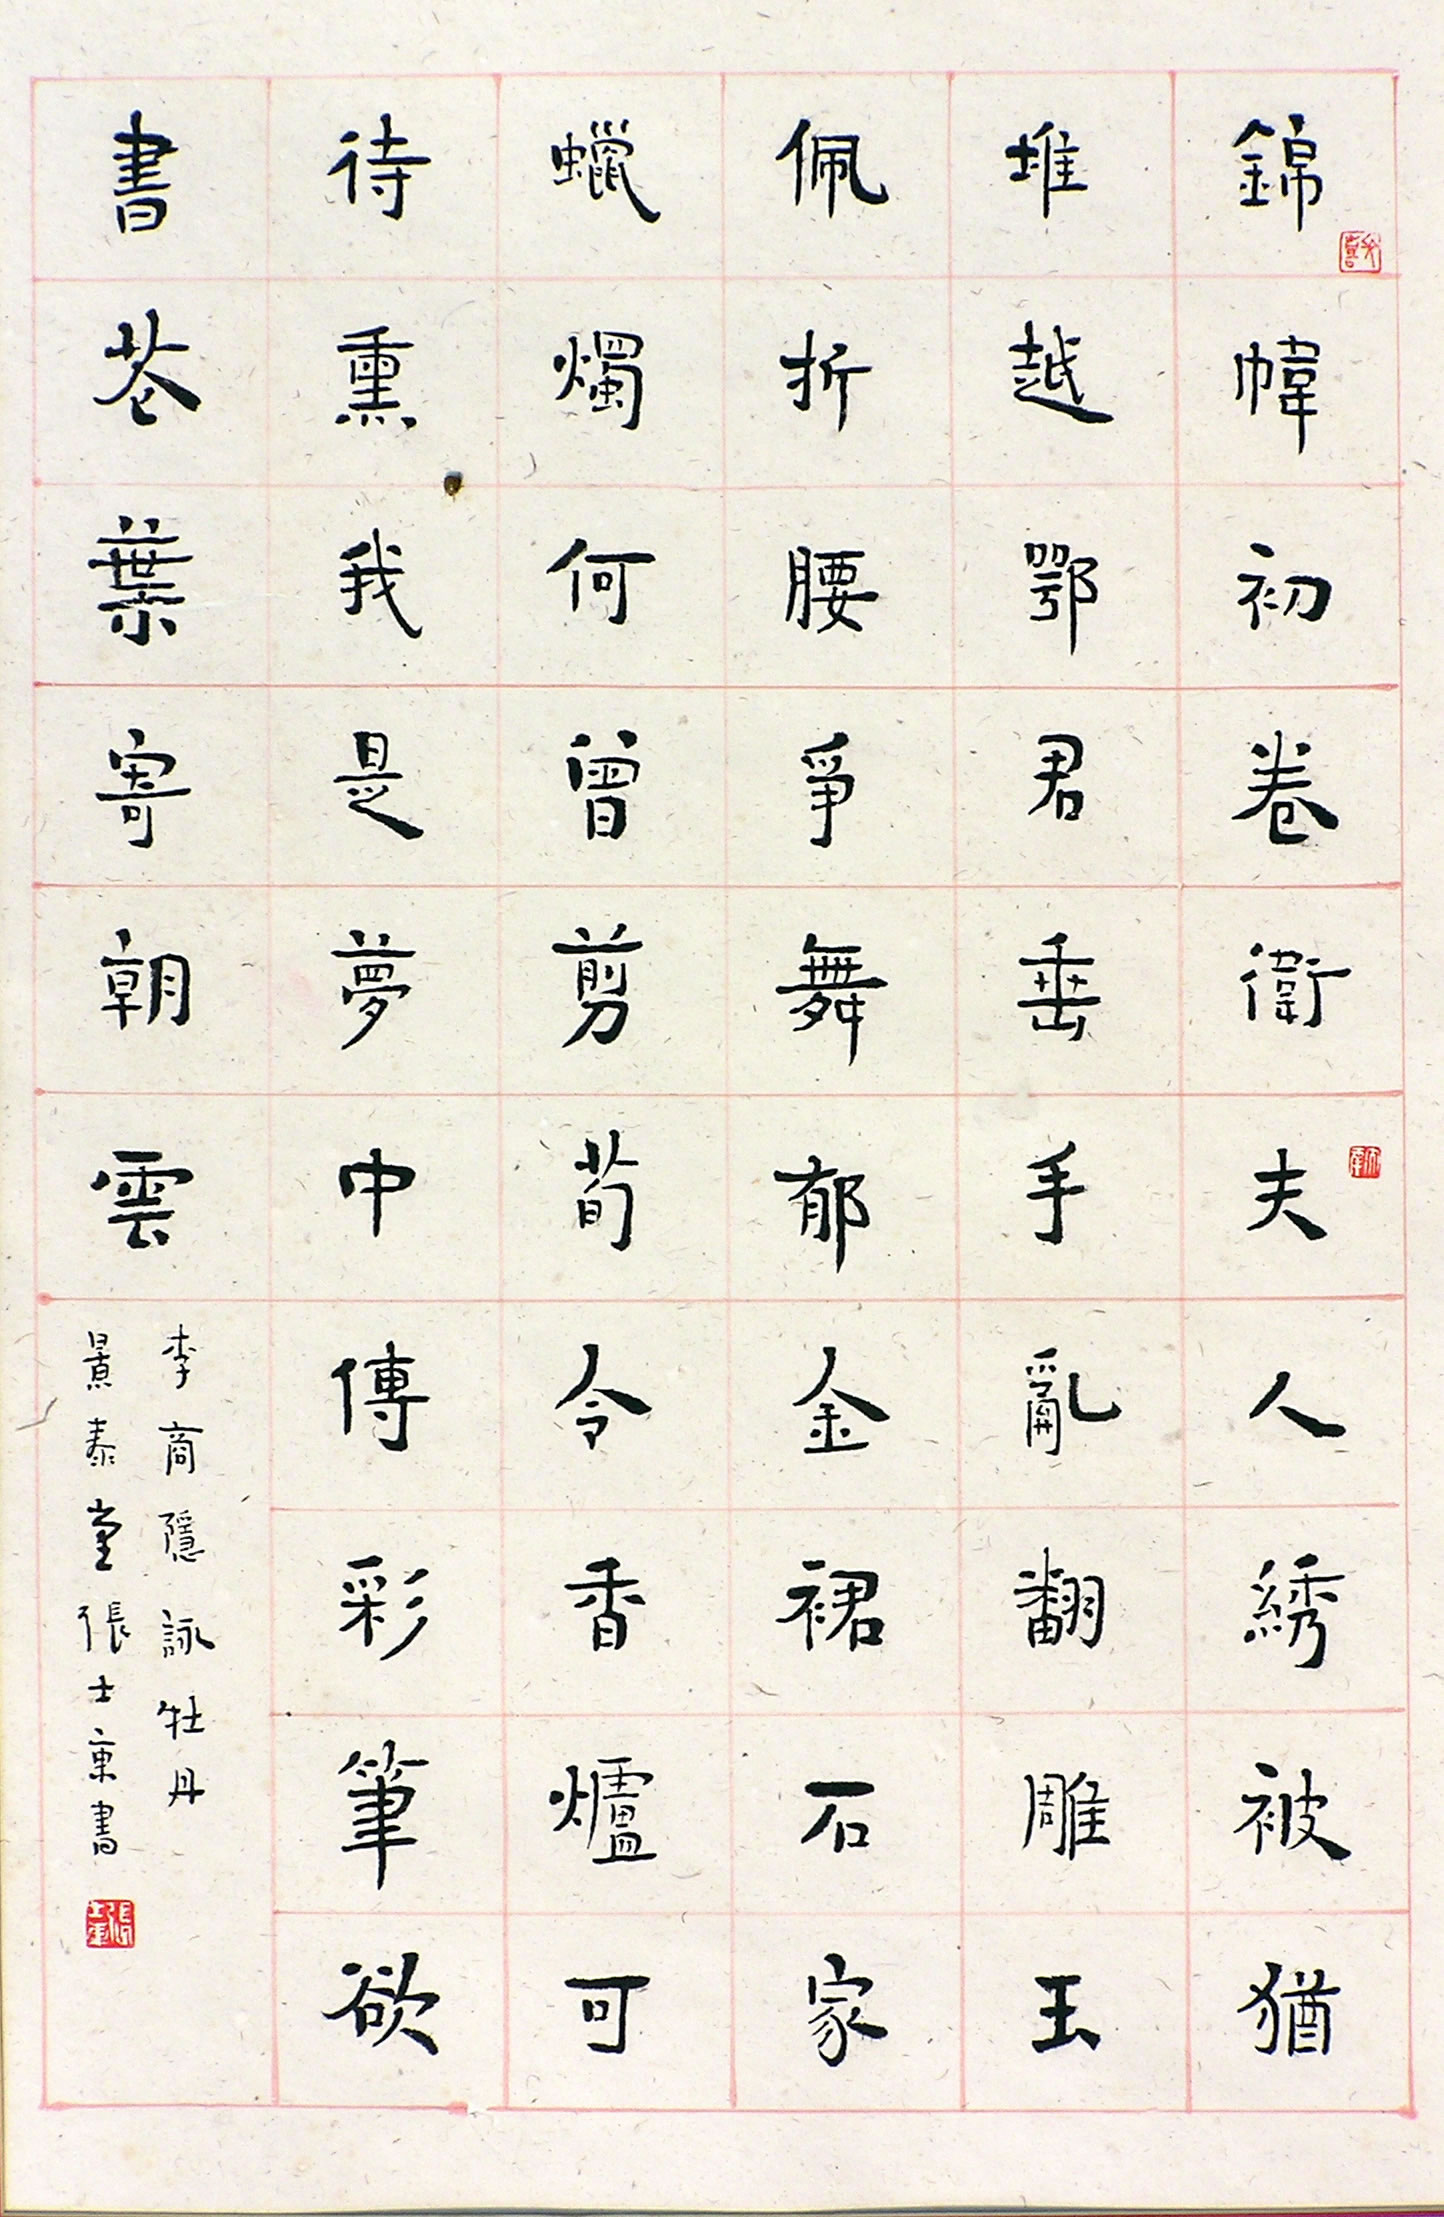 錦幃初卷衛夫人綉被猶
堆越鄂君垂手亂翻雕玉
佩折腰爭舞郁金裙石家
蠟燭何曾剪荀令香爐可
待熏我是夢中傳彩筆欲
書花葉寄朝雲
李商隱詠牡丹
景泰堂張士東書